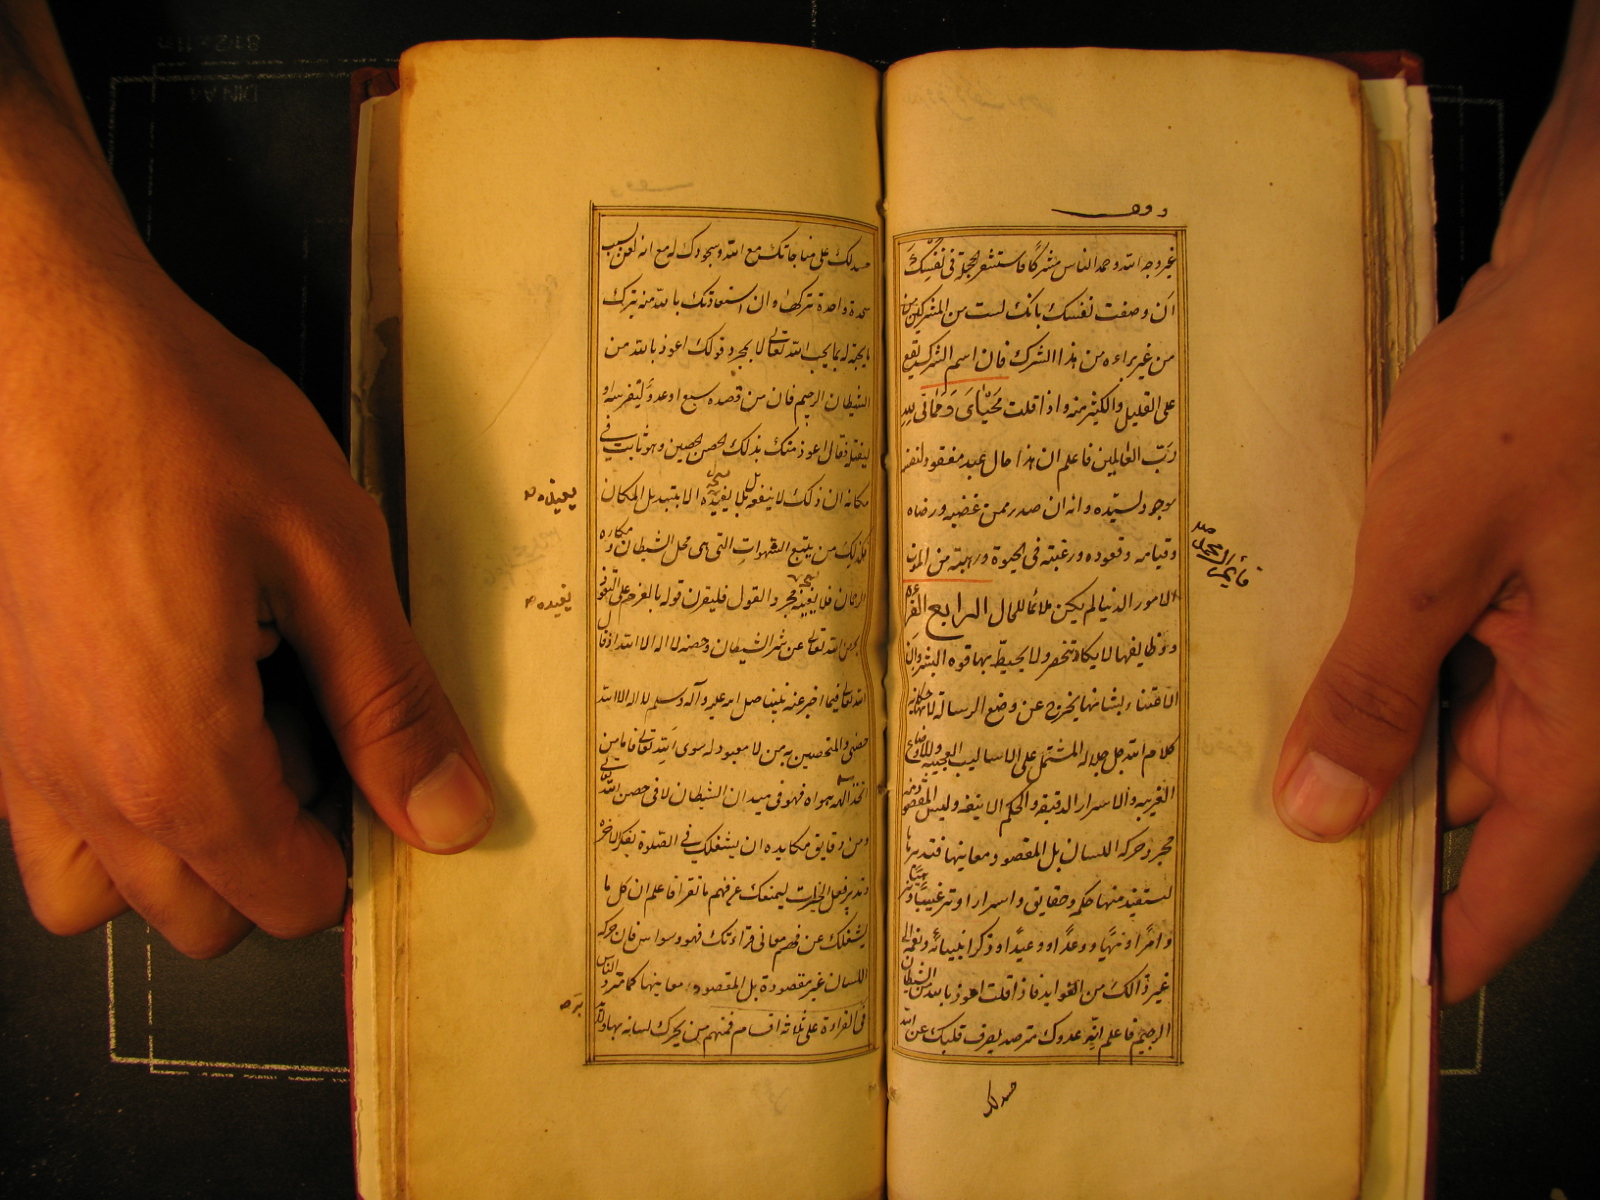 وقف
غير وجه الله وحمد الناس مشركا فاستشعر الخجلة في نفسك
ان وصفت نفسك بانك لست من المشركين
من غير براءه من هذا الشرك فان اسم الشرك يقع
على القليل والكثير منه واذا قلت محياى ومماتى لله
رب العالمين فاعلم ان هذا حال عبد مفقود لنفسه
موجود لسيده وانه ان صدر ممن غضبه ورضاه
وقيامه وقعوده ورغبته في الحيوة ورهبته من الموت
لامور الدنيا لم يكن ملائما للحال الرابع القراءة
ووظايفها لا يكاد تنحصر ولا يحيط بها قوه البشر وان
الاعتناء بشانها يخرج عن وضع الرسالة لانها حكاية
كلام الله جل جلاله المشتمل على الاساليب العجيبه والاوضاع
الغريبه والاسرار الدقيقه والحكم الانيقه وليس المقصود منه
مجرد حركه اللسان بل المقصود معانيها وتدبرها
لتستفيد منها حكم وحقايق واسرارا وترغيبا وترهيبا
وامرا ونهيا ووعدا ووعيدا وذكر انبيائه ونعمه الى
غير ذالك من الفوايد فاذا قلت اعوذ بالله من الشيطان
الرجيم فاعلم انه عدوك مترصد لصرف قلبك عن الله
حسد لك
حسد لك على مناجاتك مع الله وسجودك له مع انه لعن بسبب
سجدة واحدة تركها وان استعاذتك بالله منه بترك
ما يحبه بما يحب الله تعالى لا بمجرد قولك اعوذ بالله من
الشيطان الرجيم فان من قصده سبع او عدو ليفترسه او
ليقتله فقال اعوذ منك بذلك الحصن الحصين وهو ثابت في
مكانه ان ذلك لا ينفعه بل لا يفيده الا بتبديل المكان
يعيذه
فكذلك من يتبع الشهوات التى هى محل الشيطان ومكاره
الرحمان فلا يعيذه مجرد القول فليقرن قوله بالعزم على التعوذ
يفيده
بحصن الله تعالى عن شر الشيطان وحصنه لا اله الا الله اذ قال
الله تعالى فيما اخبر عنه نبينا صلى الله عليه وآله وسلم لا اله الا الله
حصنى والمتحصن به من لا معبود له سوى الله تعالى فاما من
اتخذ الهه هواه فهو في ميدان الشيطان لا في حصن الله تعالى
ومن دقايق مكايده ان يشغلك في الصلوة بفكر الاخرة
وتدبير فعل الخيرات ليمنعك عن فهم ما تقرا فاعلم ان كل ما
يشغلك عن فهم معانى قراءتك فهو وسواس فان حركة
اللسان غير مقصودة بل المقصود معانيها كما مر والناس
في القراءة على ثلاثه اقسام فمنهم من يحرك لسانه بها ولا